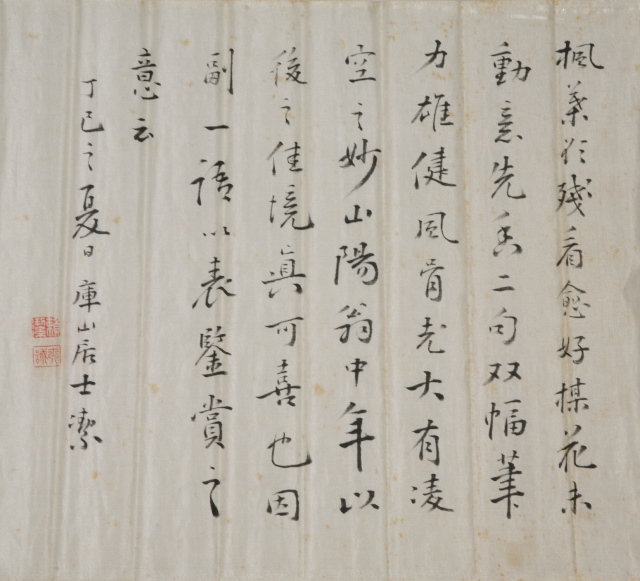 楓葉欲残看愈好楳花未
動意先香二句双幅筆
力雄健風骨老大有凌
空之妙山陽翁中年以
後之佳境真可喜也因
副一語以表鑒賞之
意云
丁巳之夏日庫山居士潔